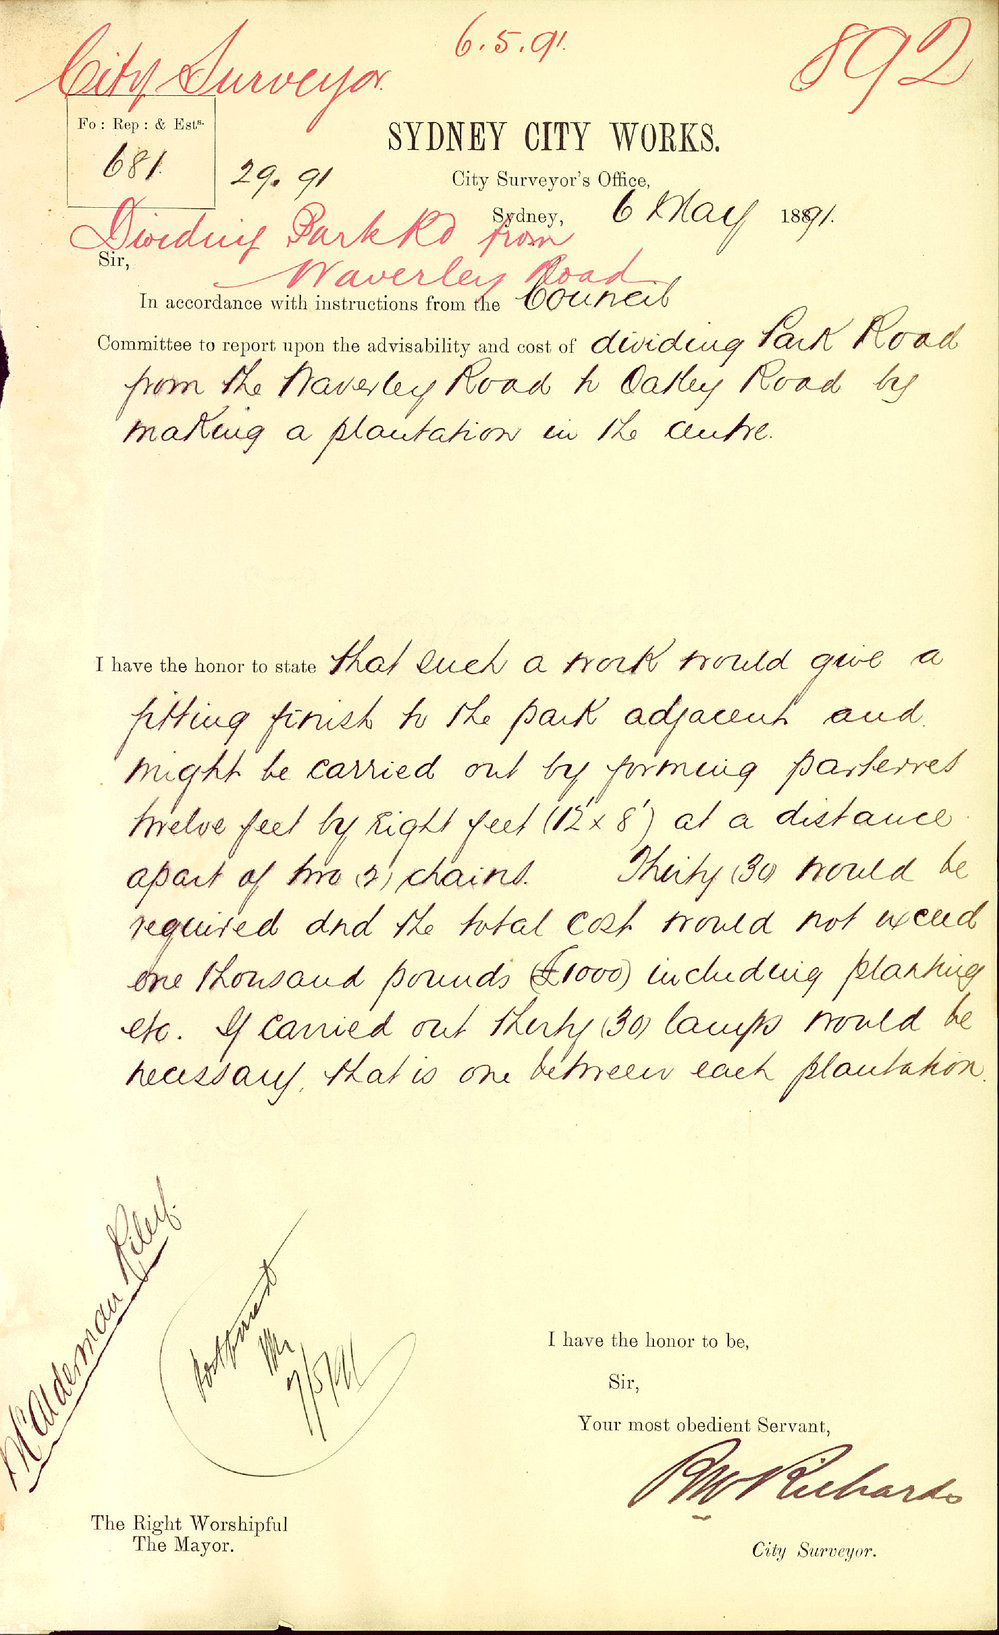 6.5.91.
892
City Surveyor.
Fo: Rep: & Ests.
681.
29.91
SYDNEY CITY WORKS.
City Surveyor's Office,
Sydney, 6 May 1891.
Dividing Park Rd from
Waverley Road
Sir,
In accordance with instructions from the Council
Committee to report upon the advisability and cost of dividing Park Road
from the Waverley Road to Oatley Road by
making a plantation in the centre.
I have the honor to state that such a work would give a
fitting finish to the park adjacent and
might be carried out by forming parterres
twelve feet by Eight feet (12' x 8') at a distance
apart of two (2) chains. Thirty (30) would be
required and the total cost would not exceed
one thousand pounds (£1000) including planting
etc. If carried out thirty (30) lamps would be
necessary, that is one between each plantation.
Mr Alderman Riley.
Postponed
7/5/91
I have the honor to be,
Sir,
Your most obedient Servant,
RW Richards
City Surveyor.
The Right Worshipful
The Mayor.